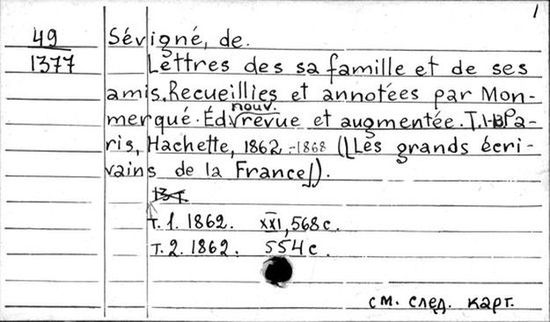 1
49 Sévigné, de.
1377 Lettres des sa famille et de ses
amis. Recueillies et annotées par Mon-
merqué. Éd. nouv. revue et augmentée. T. Pa-
ris, Hachette, 1862-1868 (Les grands écri-
vains de la France).
T. 1. 1862. XXI, 568 с.
T. 2. 1862. 554 с.
см. след. карт.